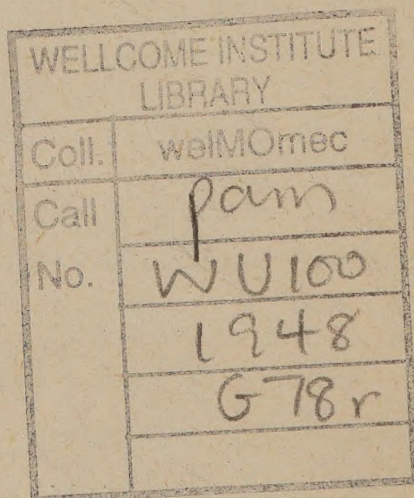 WELLCOME INSTITUTE
LIBRARY
Coll. welMOmec
Call pam
No. WU100
1948
G78r